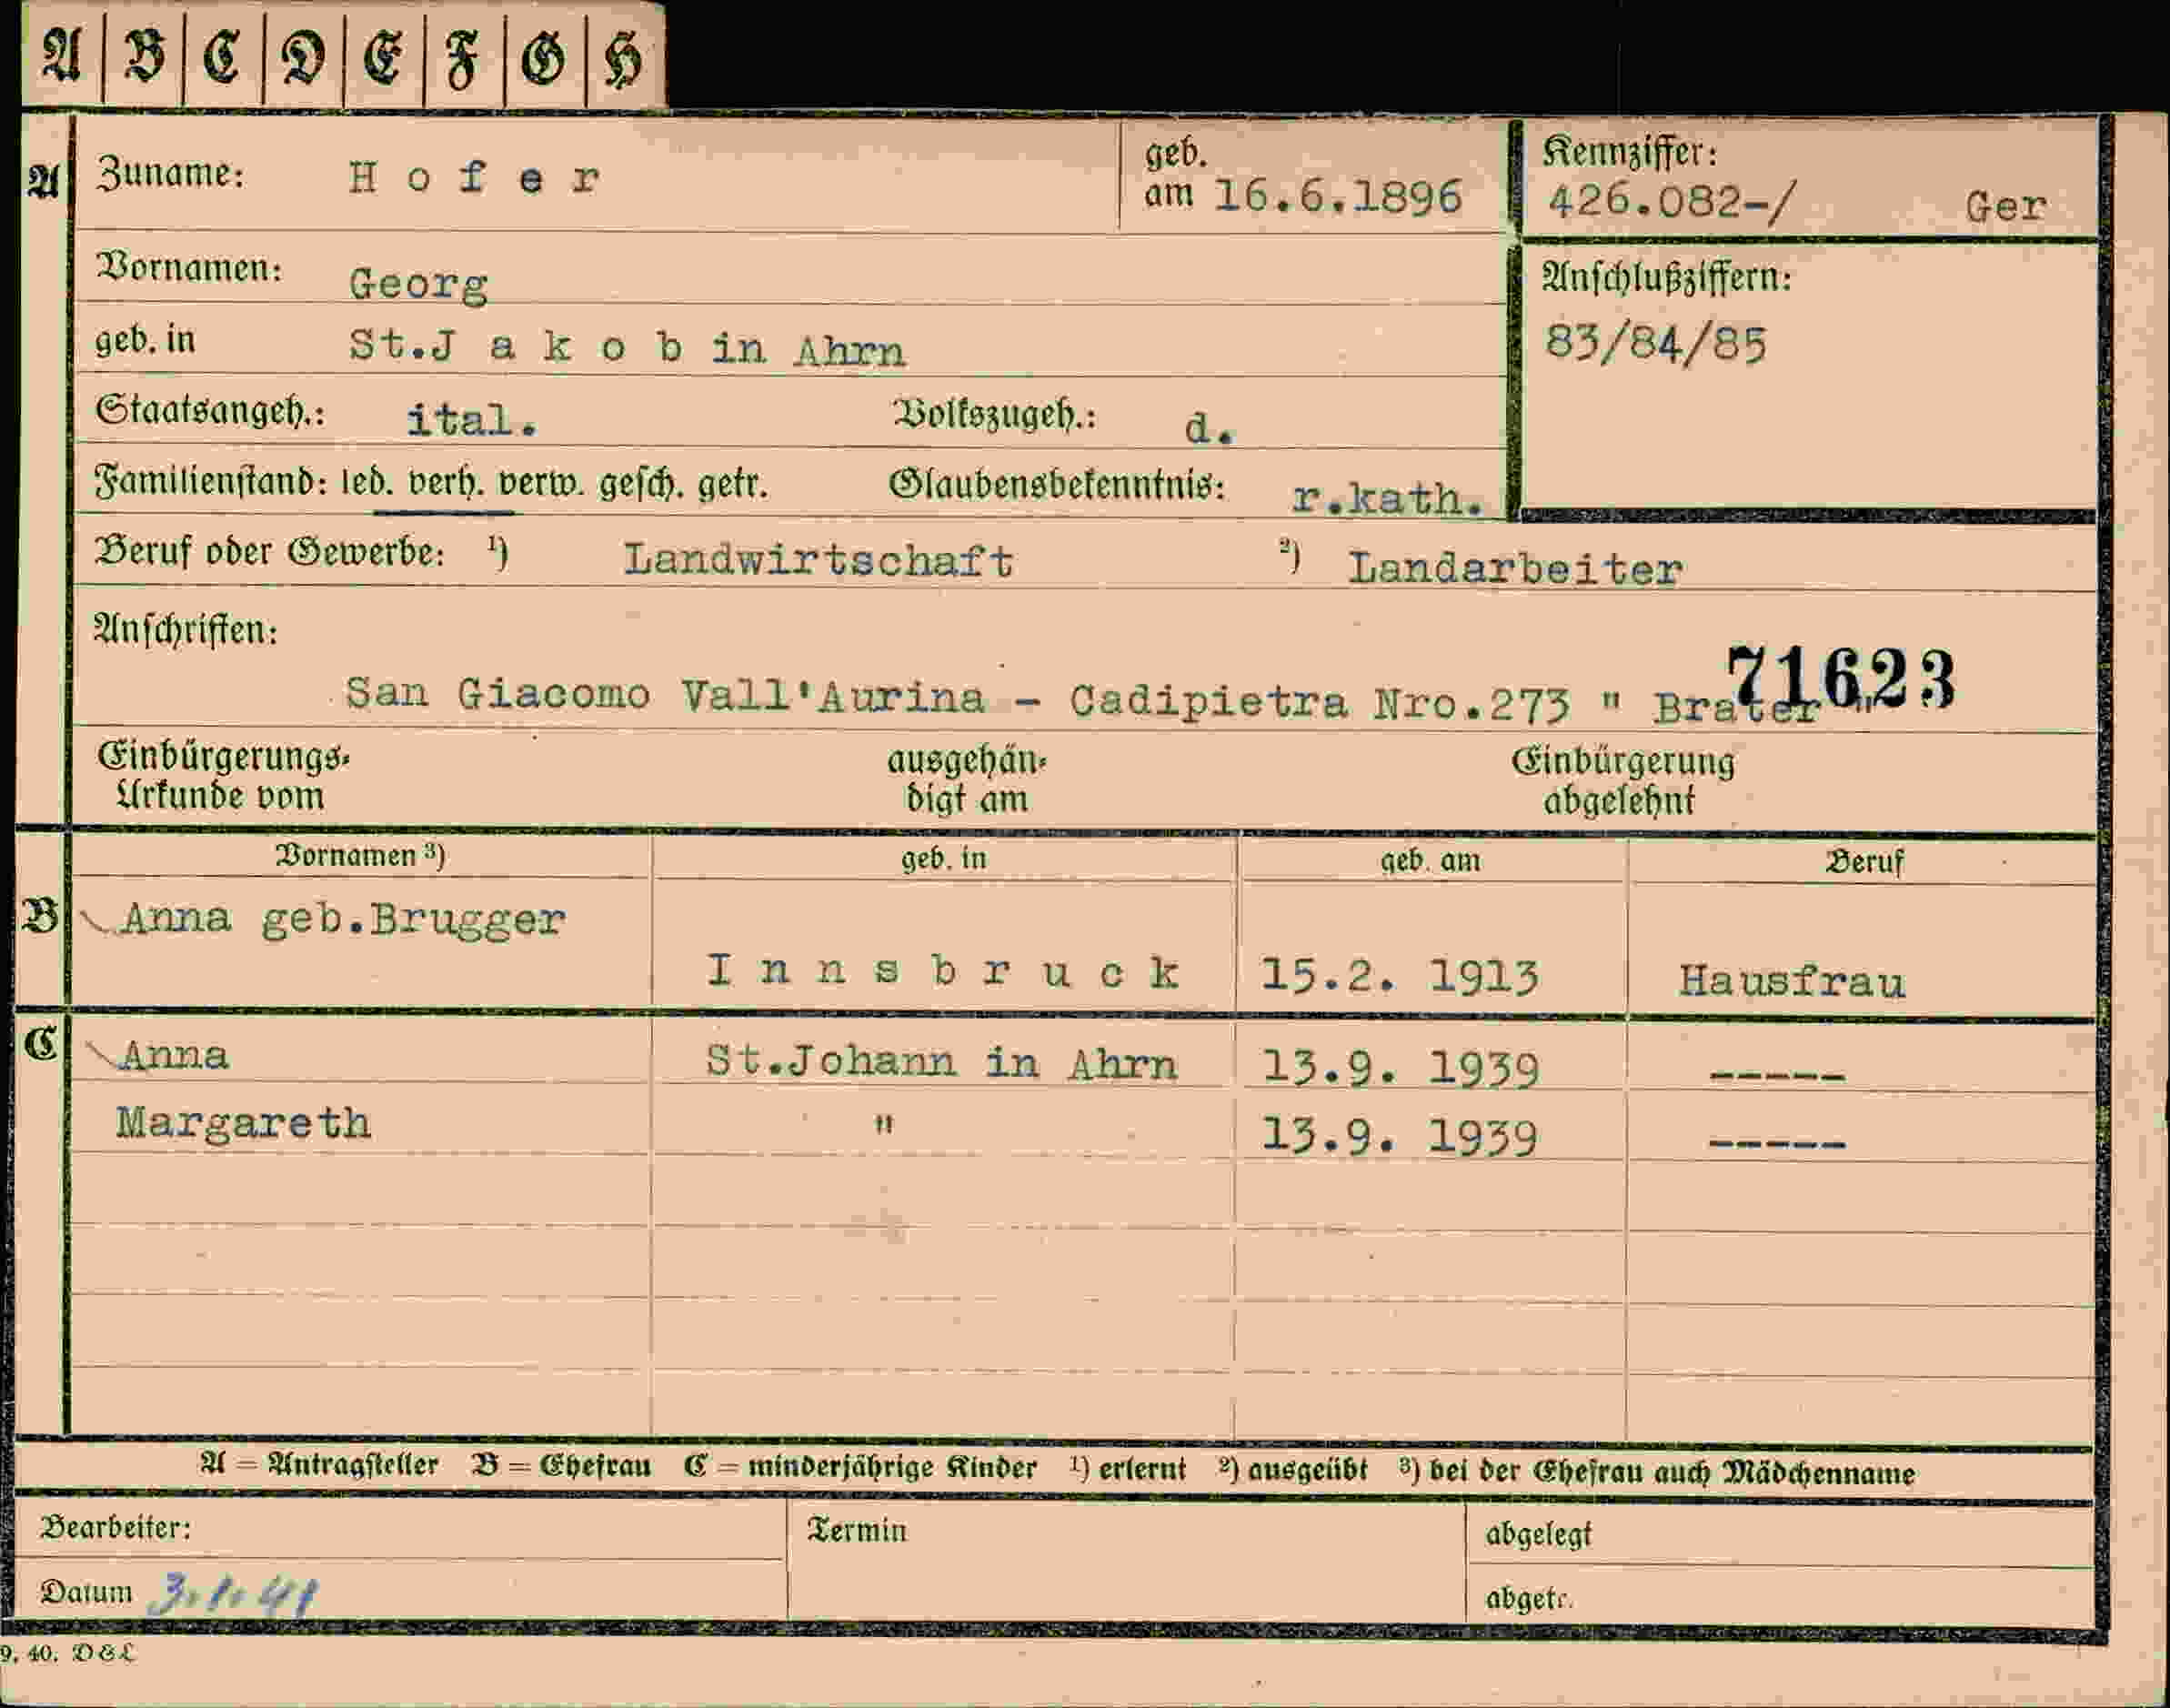 A B C D E F G H
A Zuname: H o f e r geb. am 16.6.1896 Kennziffer: 426.082-/ Ger
Vornamen: Georg Anschlußziffern:
geb. in St.J a k o b in Ahrn 83/84/85
Staatsangeh.: ital. Volkszugeh.: d.
Familienstand: led. verh. verw. gesch. getr. Glaubensbekenntnis: r.kath.
Beruf oder Gewerbe: ¹) Landwirtschaft ²) Landarbeiter
Anschriften:
71623
San Giacomo Vall'Aurina - Cadipietra Nro.273 " Brater "
Einbürgerungs- ausgehän- Einbürgerung
Urkunde vom digt am abgelehnt
Vornamen ³) geb. in geb. am Beruf
B Anna geb.Brugger
I n n s b r u c k 15.2. 1913 Hausfrau
C Anna St.Johann in Ahrn 13.9. 1939 -----
Margareth " 13.9. 1939 -----
A = Antragsteller B = Ehefrau C = minderjährige Kinder ¹) erlernt ²) ausgeübt ³) bei der Ehefrau auch Mädchenname
Bearbeiter: Termin abgelegt
Datum 3.1.41 abgetr.
9. 40. D&L